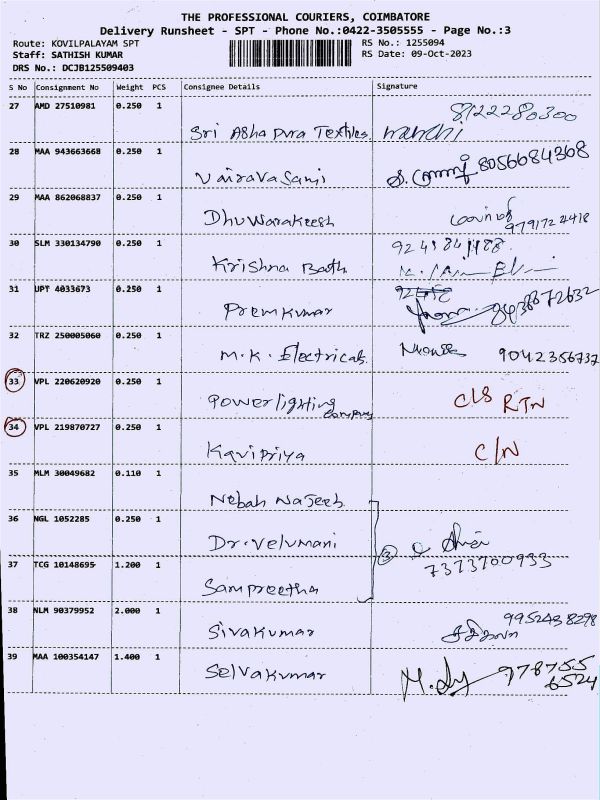 THE PROFESSIONAL COURIERS, COIMBATORE
Delivery Runsheet - SPT - Phone No.:0422-3505555 - Page No.:3
Route: KOVILPALAYAM SPT
Staff: SATHISH KUMAR
DRS No.: DCJB125509403
RS No.: 1255094
RS Date: 09-Oct-2023
S No Consignment No Weight PCS Consignee Details Signature
27 AMD 27510981 0.250 1 Sri Asha pura Textiles 8122280300
28 MAA 943663668 0.250 1 Vairava Sami 8056684368
29 MAA 862068837 0.250 1 Dhuwarakeesh 9791724418
30 SLM 330134790 0.250 1 Krishna Bath
31 UPT 4033673 0.250 1 Premkumar
32 TRZ 250005060 0.250 1 M.K. Electricals 9042356737
33 VPL 220620920 0.250 1 Power lighting company CLS RTN
34 VPL 219870727 0.250 1 Kavipriya C/N
35 MLM 30049682 0.110 1 Nebah Najeeb
36 NGL 1052285 0.250 1 Dr. Velumani
3 7373700933
37 TCG 10148695 1.200 1 Sampreetha
38 NLM 90379952 2.000 1 Sivakumar 9952438298
39 MAA 100354147 1.400 1 Selvakumar 978755
6524